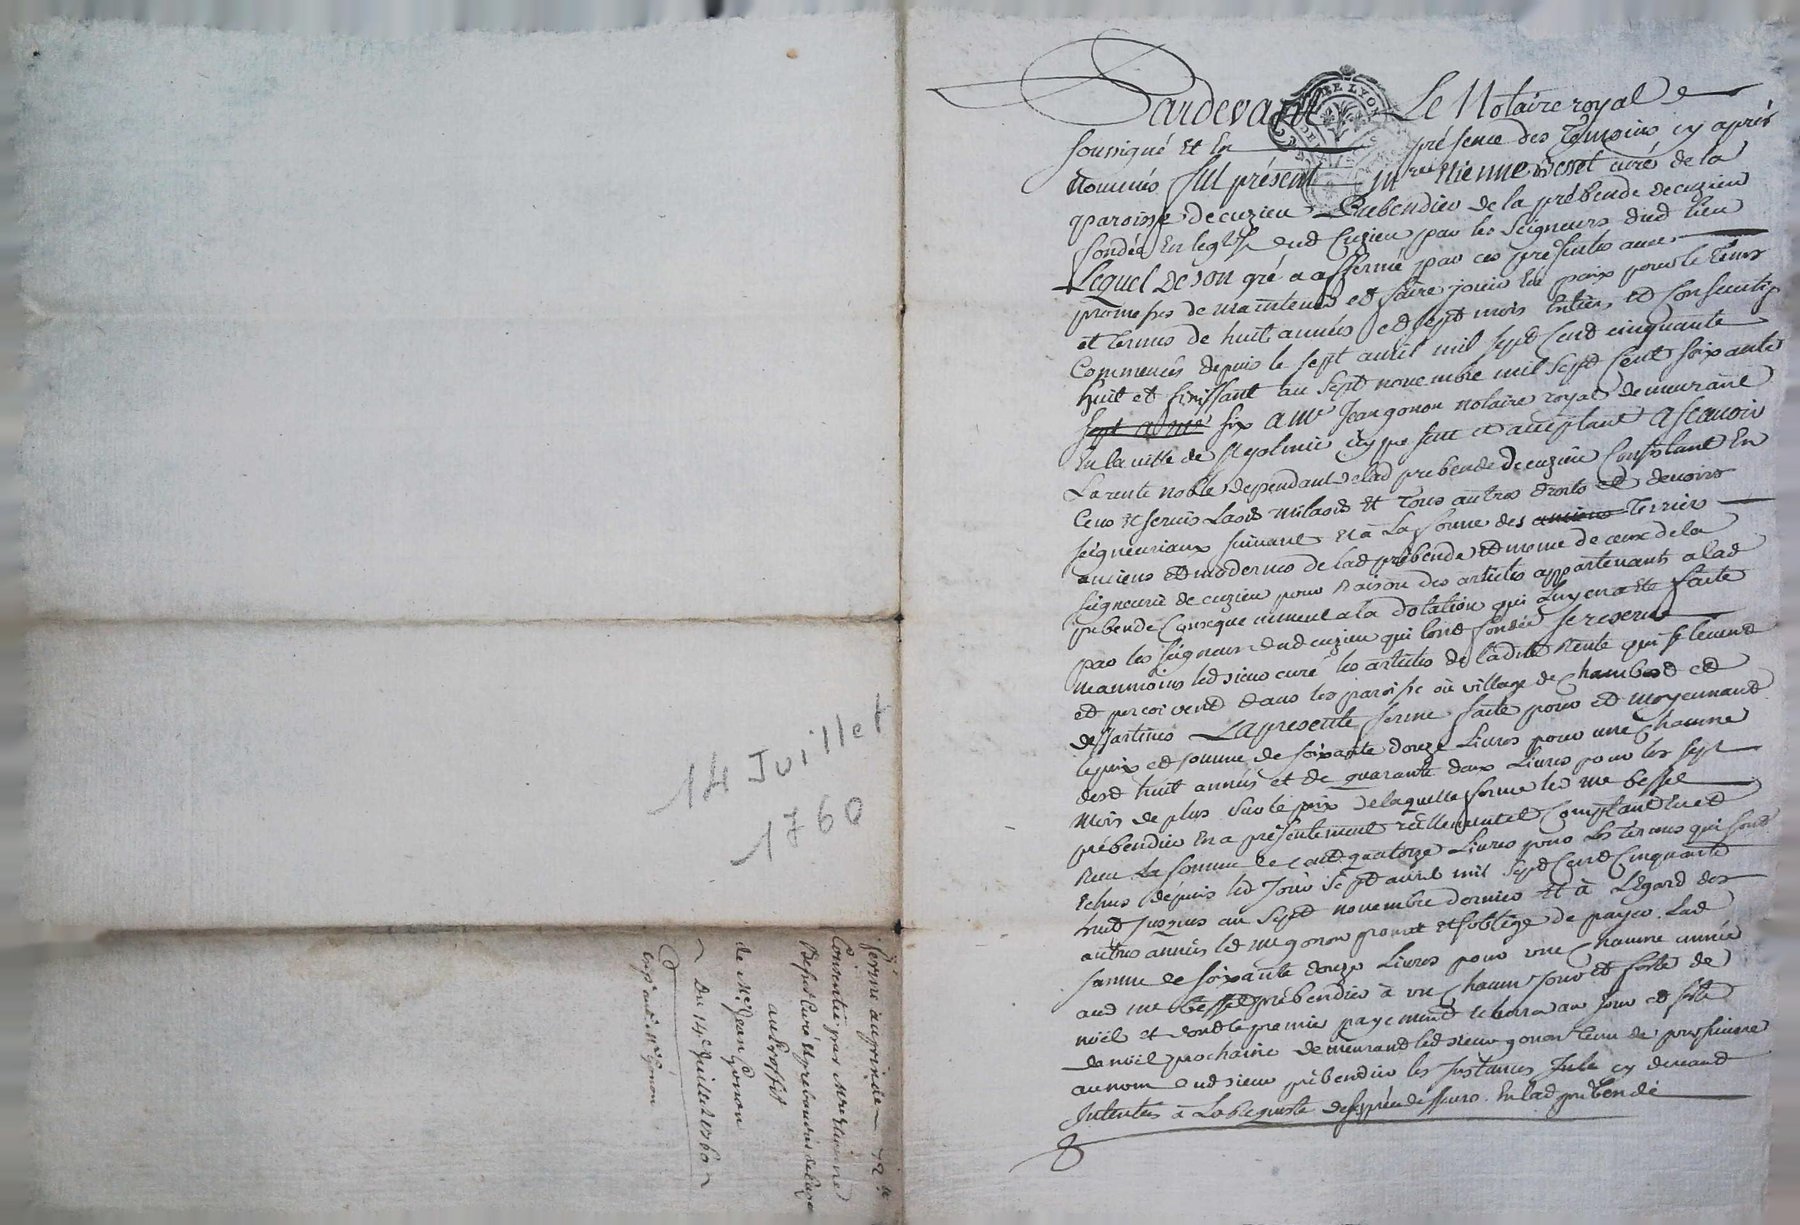 14 Juillet
1760
ferme au prix de 72 ₶
Consentie par Mre Etienne
Besset Curé et prebendier de Cuzieu
au proffit
de Me Jean Gonon
Du 14e Juillet 1760
Expén aud. Me Gonon
Pardevant Le Notaire royal
soussigné et en présence des Témoins cy après
nommés fut présent mre Etienne Besset curé de la
paroisse de cuzieu Prebendier de la prébende de cuzieu
fondée En leglise dud Cuzieu par les Seigneurs dud lieu
Lequel de son gré a affermé par ces présentes avec
promesses de maintenir et faire jouir En paix pour le tems
et termes de huit années et sept mois Entiers et Consecutifs
Commencés depuis le sept avril mil sept Cent cinquante
huit et finissant au sept novembre mil sept Cent soixante
six a Me Jean gonon notaire royal demeurant
En la ville de st galmier cy present et acceptant ascavoir
La rente noble dependant de lad prebende de cuzieu Consistant En
Cens et servis Laods milaods et tous autres droits et devoirs
seigneuriaux suivant et à La forme des anciens Terriers
anciens et modernes de lad prébende et meme de ceux de la
seigneurie de cuzieu pour Raison des articles appartenants a lad
prebende Consequemment a la dotation qui Luy en a Eté faite
par les seigneurs dud cuzieu qui lont fondée se reserve
neanmoins led sieur curé les articles de ladite Rente qui se levent
et perçoivent dans les paroisse ou village de Chambost et
dessartines La presente ferme faite pour et moyennant
le prix et somme de soixante douze Livres pour une Chacune
desd huit années et de quarante deux Livres pour les sept
mois de plus sur le prix de laquelle ferme led me besset
prébendier En a présentement réellement et Comptant Eu et
Reçu La somme de Cent quatorze Livres pour Les termes qui sont
Echus depuis led Jour sept avril mil sept Cent Cinquante
huit Jusques au sept novembre dernier et à Légard des
autres années led me gonon promet et soblige de payer Lad
somme de soixante douze Livres pour une Chacune année
aud me besset prébendier à un Chacun Jour et feste de
noël et dont le premier payement Echerra au jour et feste
de noël prochain demeurant led sieur gonon tenu de poursuivre
au nom dud sieur prébendier les Instances Jule cy devant
Intentées à La Requeste de ses prédécesseurs En lad prebende